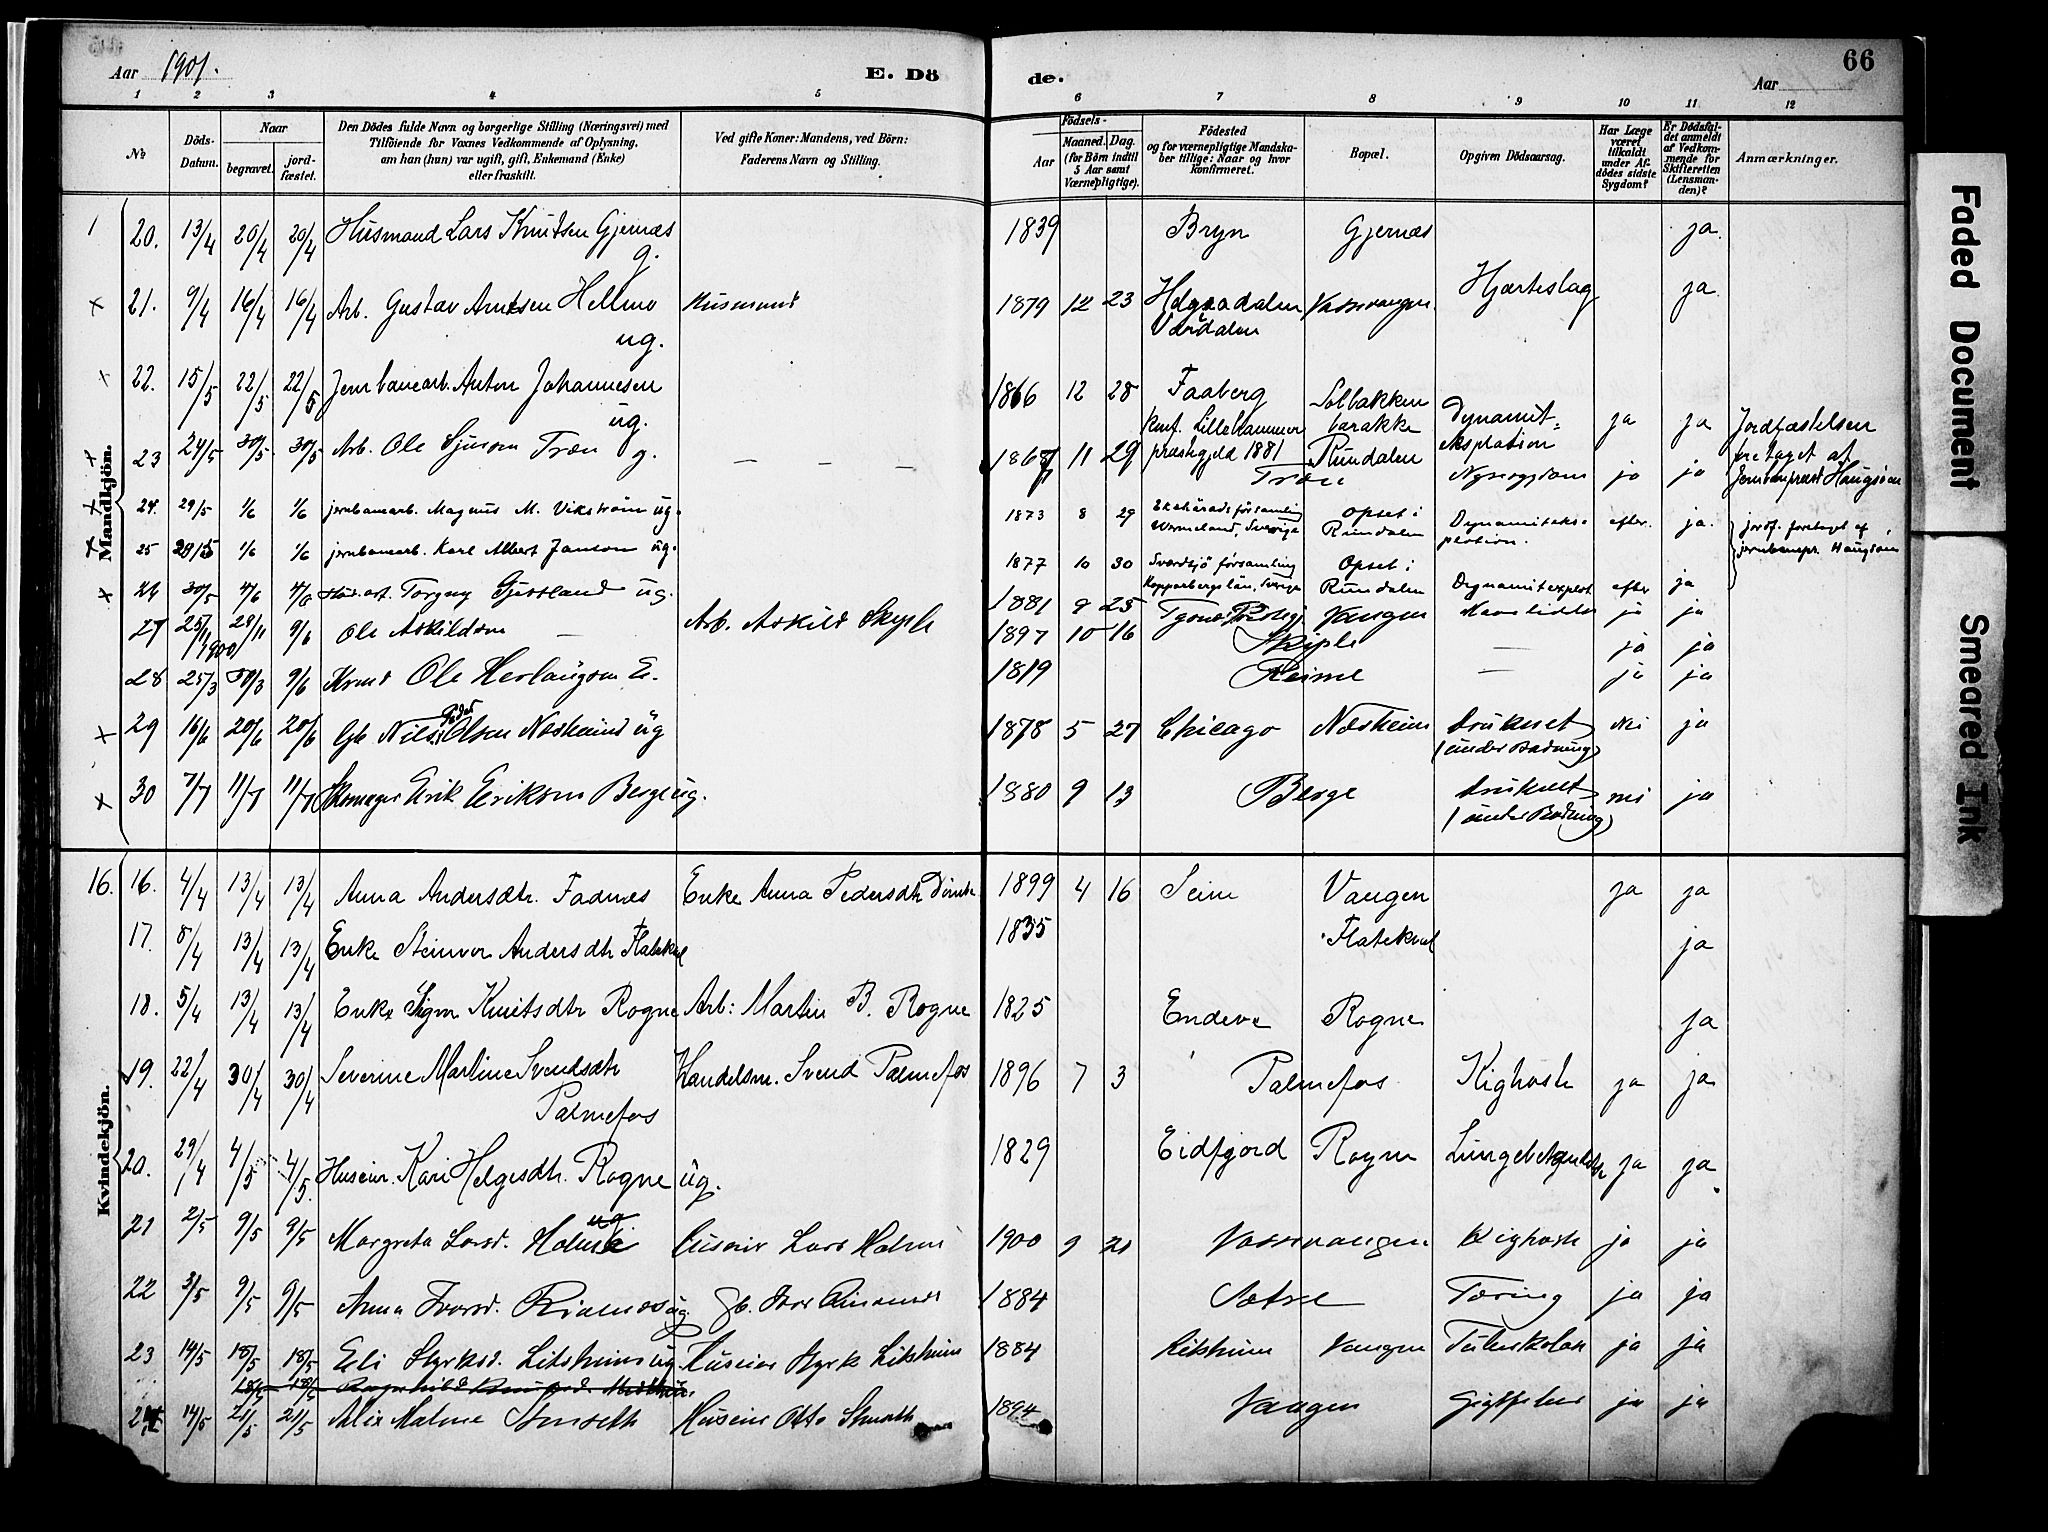 Aar 1901.
E. Dö
de.
Aar
66
1 2 3 4 5 6 7 8 9 10 11 12
No
Döds-Datum.
Naar
begravet.
jord-fæstet.
Den Dödes fulde Navn og borgerlige Stilling (Næringsvei) med
Tilföiende for Voxnes Vedkommende af Oplysning,
om han (hun) var ugift, gift, Enkemand (Enke)
eller fraskilt.
Ved gifte Koner: Mandens, ved Börn:
Faderens Navn og Stilling.
Födsels-
Aar
Maaned. Dag.
(for Börn indtil
5 Aar samt
Værnepligtige).
Födested
og for værnepligtige Mandska-
ber tillige: Naar og hvor
konfirmeret.
Bopæl.
Opgiven Dödsaarsag.
Har Læge
været
tilkaldt
under Af-
dödes sidste
Sygdom?
Er Dödsfal-
det anmeldt
af Vedkom-
mende for
Skifteretten
(Lensman-
den)?
Anmærkninger.
Mandkjön.
20. 13/4 20/4 20/4 Husmand Lars Knutsen Gjernæs g. 1839 Bryn Gjernæs ja.
21. 9/4 16/4 16/4 Arb. Gustav Arntsen Hellmo ug. Husmand 1879 12 23 Vossevangen Hjærteslag ja.
22. 15/5 22/5 22/5 Jernbanearb. Anton Johannesen ug. 1866 12 28 Faaberg konf. Lillehammer præstegjeld 1881 Solbakken barakke Rundalen Dynamit-eksplotion ja ja Jordfæstelsen foretaget af Jernbanepræst Haugsöen
23 24/5 30/5 30/5 Arb. Ole Sjurson Træn g. — — — 1867 11 29 Træn ja ja
24. 29/5 1/6 1/6 jernbanearb. Magnus M. Vikström ug. 1873 8 29 Ekshärads församling Wermeland, Sverige Opset i Rundalen Dynamiteks-plotion. efter. ja. jordf. foretaget af jernbanepr. Haugsöen
25 28/5 1/6 1/6 jernbanearb. Karl Albert Janson ug. 1877 10 30 Svardsjö församling Kopparbergs län, Sverige Opset i Rundalen Dynamitexpl. efter ja
26 30/5 4/6 4/6 Torgny ug. 1881 9 25 Vangen ja ja
27 25/11 1900 28/11 9/6 Ole Askildson — Arb. Askild Skiple 1897 10 16 Skiple — ja ja
28 25/3 30/3 9/6 Ole Herlaugson E. 1819 Reime — ja ja
29 16/6 20/6 20/6 Gb. Nils Peder Olsen Næsheim ug 1878 5 27 Chicago Næsheim druknet (under Badning) nei ja
30 7/7 11/7 11/7 Skomager Erik Erikson Berge ug. 1880 9 13 Berge druknet (under Badning) nei ja
Kvindekjön.
16. 16. 4/4 13/4 13/4 Anna Andersdtr. Fadnæs Enke Anna Pedersdtr 1899 4 16 Seim Vangen ja ja
17. 8/4 13/4 13/4 Enke Steinvor Andersdtr Flatekval 1835 Flatekval ja
18. 5/4 13/4 13/4 Enke Sigrn Knutsdtr Rogne Arb: Martin B. Rogne 1825 Endeve Rogne ja
19. 22/4 30/4 30/4 Severine Martine Svendsdtr Palmefos Handelsm. Svend Palmefos 1896 7 3 Palmefos Kighoste ja ja
20. 29/4 4/5 4/5. Huseier. Kari Helgesdtr. Rogne ug. 1829 Eidfjord Rogne Lungebetændelse ja ja.
21 2/5 9/5 9/5 Margreta Larsd. Holme Huseier Lars Holme 1900 9 21 Vossevangen Kighoste ja ja
22 3/5 9/5 9/5 Anna Ivarsd. Rinenes ug. Gb. Ivar Rinenes 1884 Sætre Tæring ja ja
23 14/5 18/5 18/5 Eli Styrksd. Litsheim ug Huseier Styrk Litsheim 1884 Litsheim Vangen Tuberkolose ja ja
18/5 18/5 Ragnhild
24 14/5 21/5 21/5 Alix Malene Stenseth Huseier Otto Stenseth 1894 Vangen Gigtfeber ja ja
Faded Document
Smeared Ink